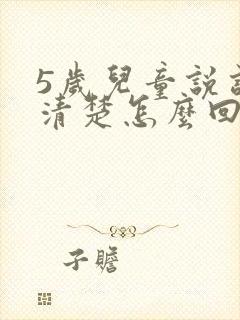 5歲兒童說
清楚怎麼回
子瞻